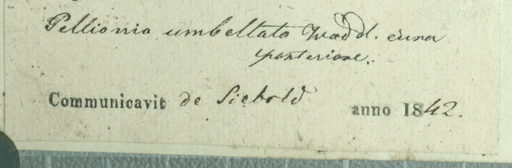 Pellionia umbellata Wedd. cura
posteriore.
Communicavit de Siebold anno 1842.